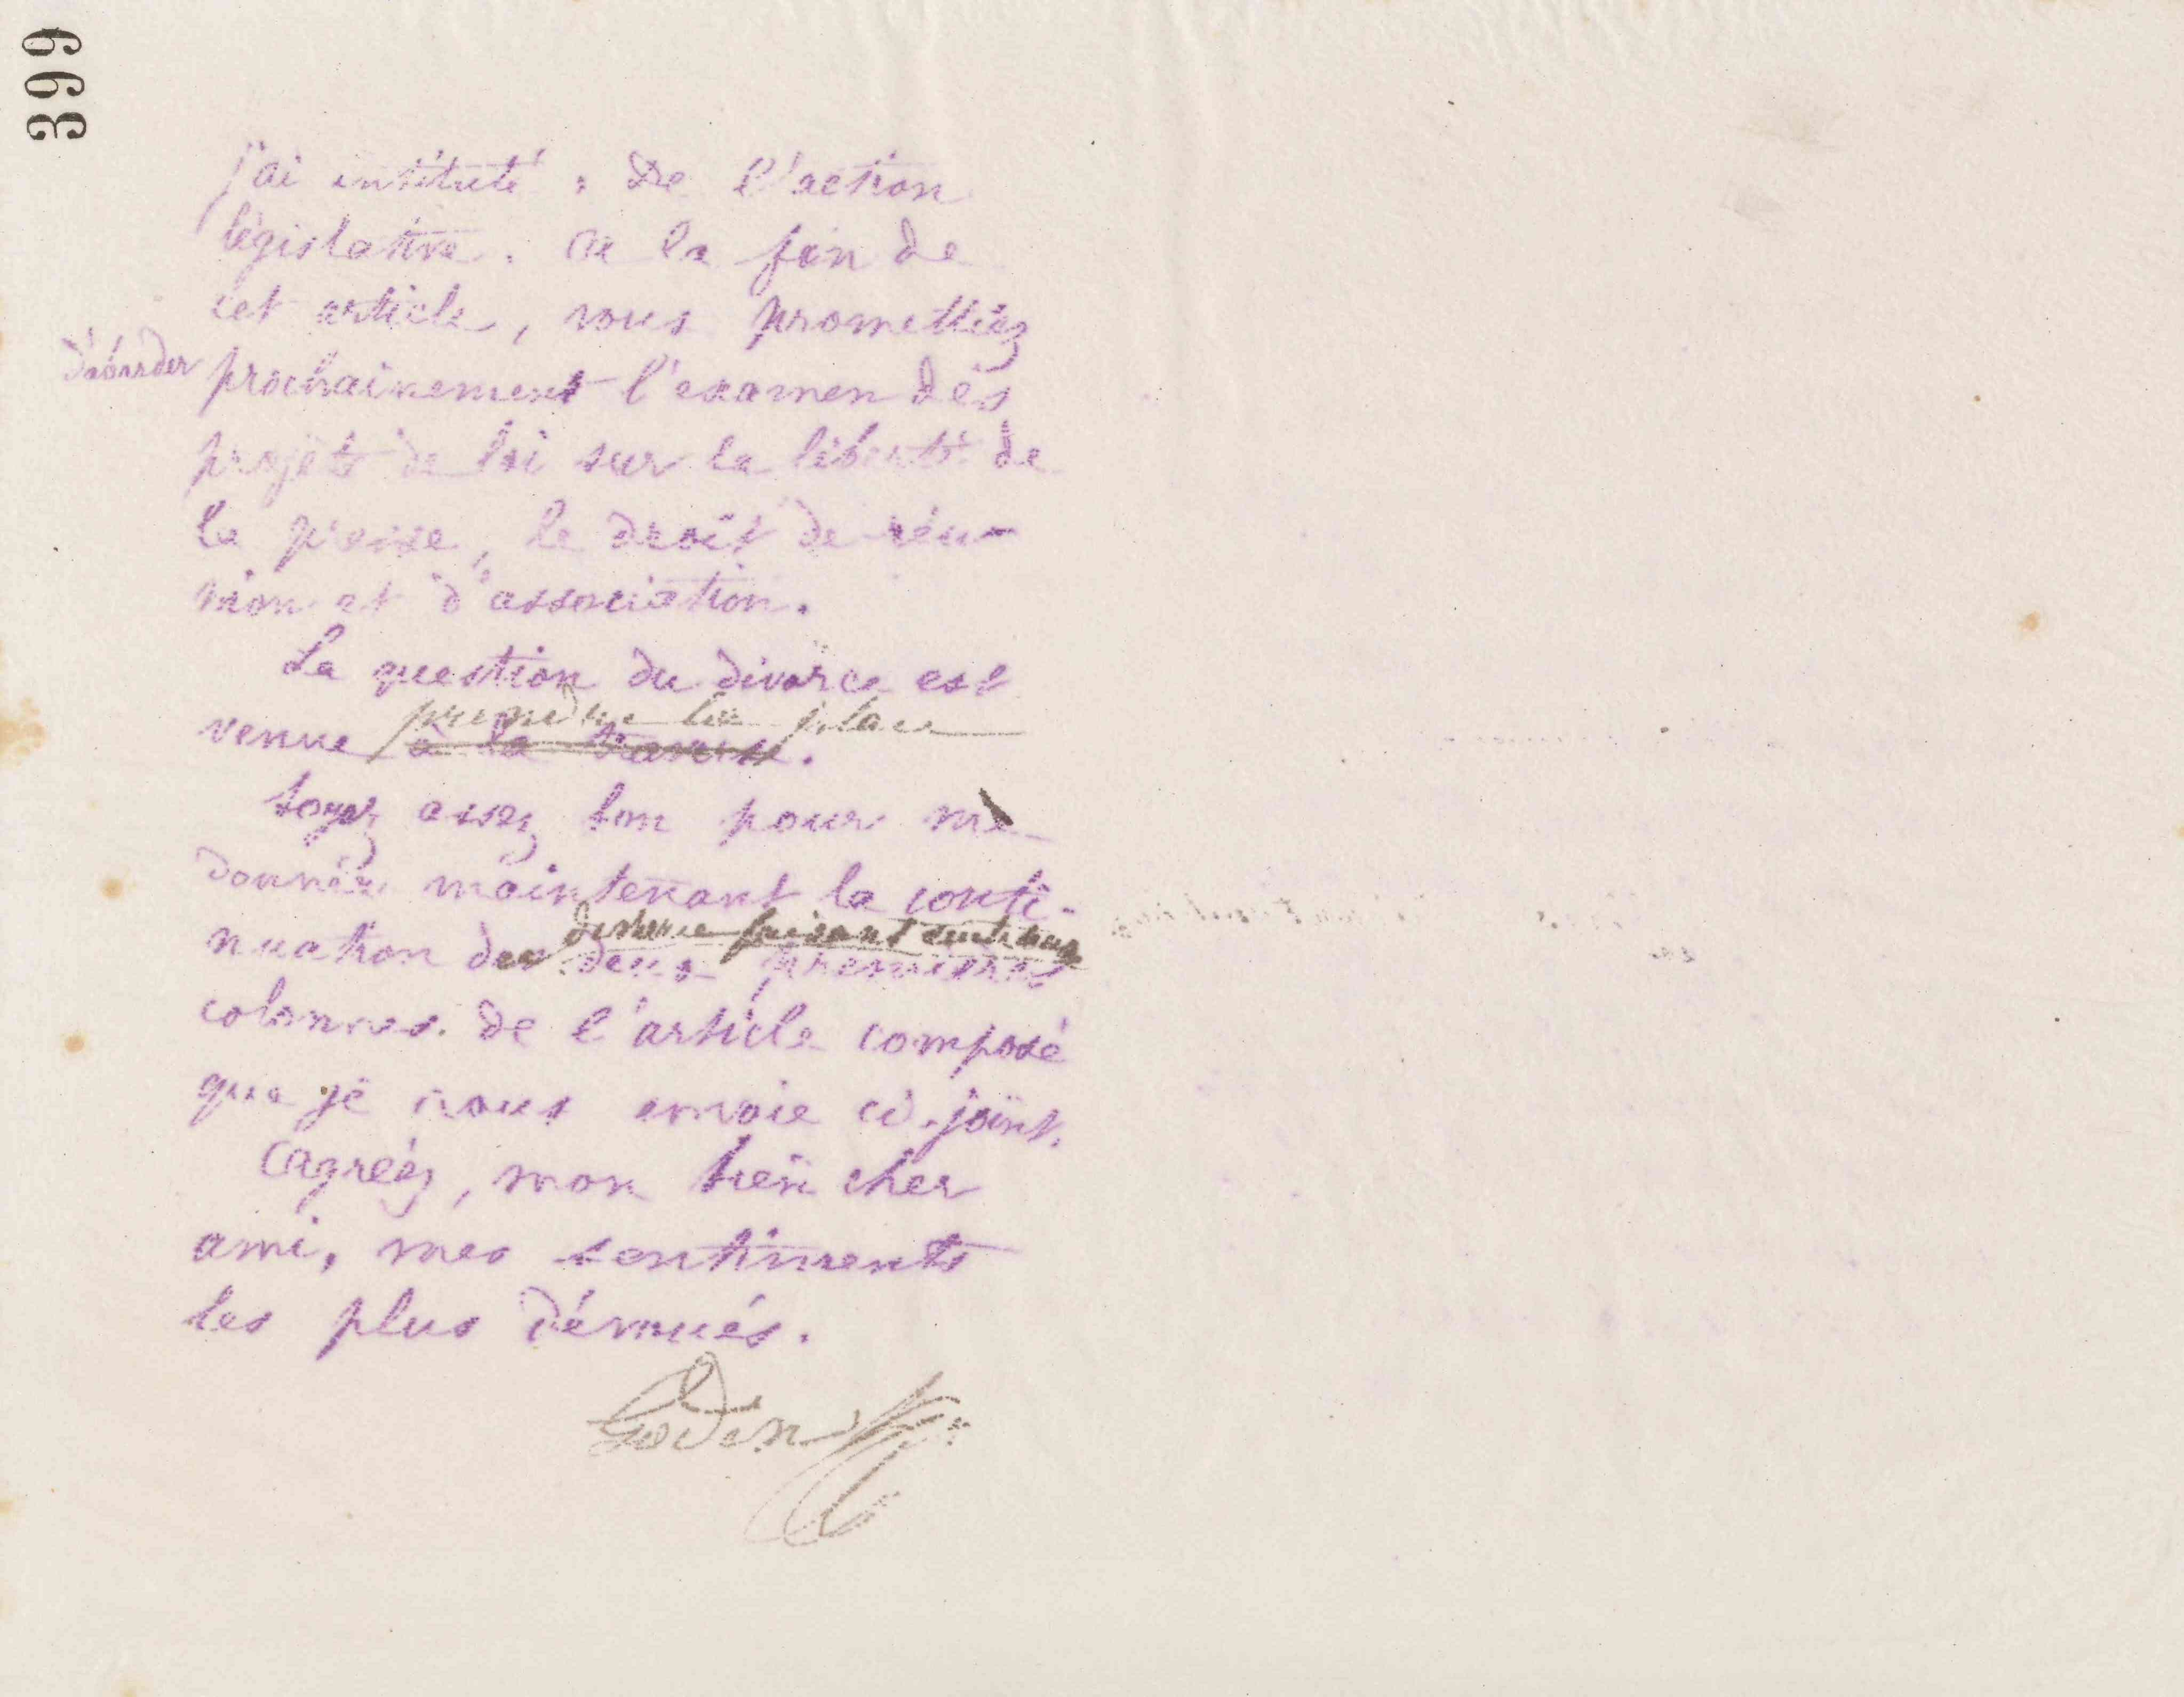 399
j'ai intitulé : De l'action
législative. A la fin de
cet article, vous promettiez
d'aborder prochainement l'examen des
projets de loi sur la liberté de
la presse, le droit de réu-
nion et d'association.
La question du divorce est
prendre la place
venue à la
Soyez assez bon pour me
donner maintenant la conti-
faisant suite aux
nuation des deux premières
colonnes de l'article composé
que je vous envoie ci-joint.
Agréez, mon bien cher
ami, mes sentiments
les plus dévoués.
Godin